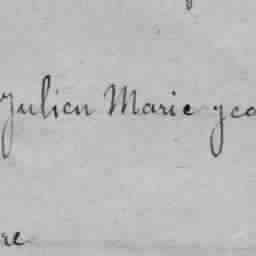 Julien Marie
re